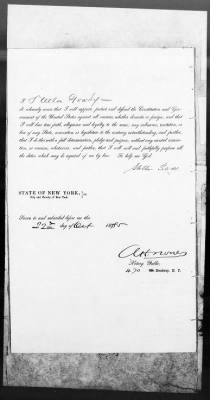 I Stella
do solemnly swear that I will support, protect and defend the Constitution and Gov-
ernment of the United States against all enemies, whether domestic or foreign, and that
I will bear true faith, allegiance and loyalty to the same, any ordinance, resolution, or
law of any State, convention or legislature to the contrary notwithstanding, and further,
that I do this with a full determination, pledge and purpose, without any mental reserva-
tion, or evasion, whatsoever, and further, that I will well and faithfully perform all
the duties which may be required of me by law. So help me God.
STATE OF NEW YORK,
City and County of New York.
Sworn to and subscribed before me this
22 day of 1885
Notary Public,
Broadway, N. Y.